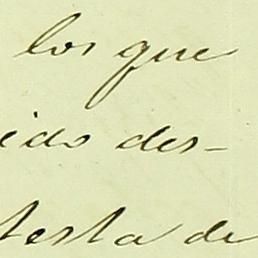 los que
ido des-
testa de